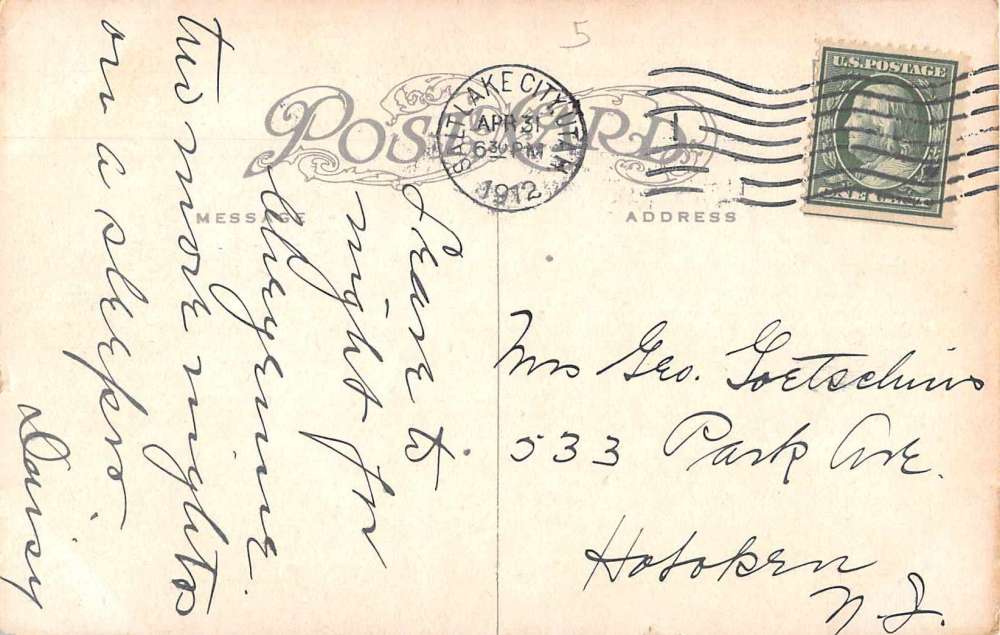 5
POST CARD
SALT LAKE CITY, UTAH
APR 31
6 30 PM
1912
1
U.S. POSTAGE
ONE
MESSAGE
ADDRESS
Leave to
night for
Cheyenne
two more nights
on a sleeper
Daisy
Mrs Geo. Goetschius
533 Park Ave.
Hoboken
N. J.